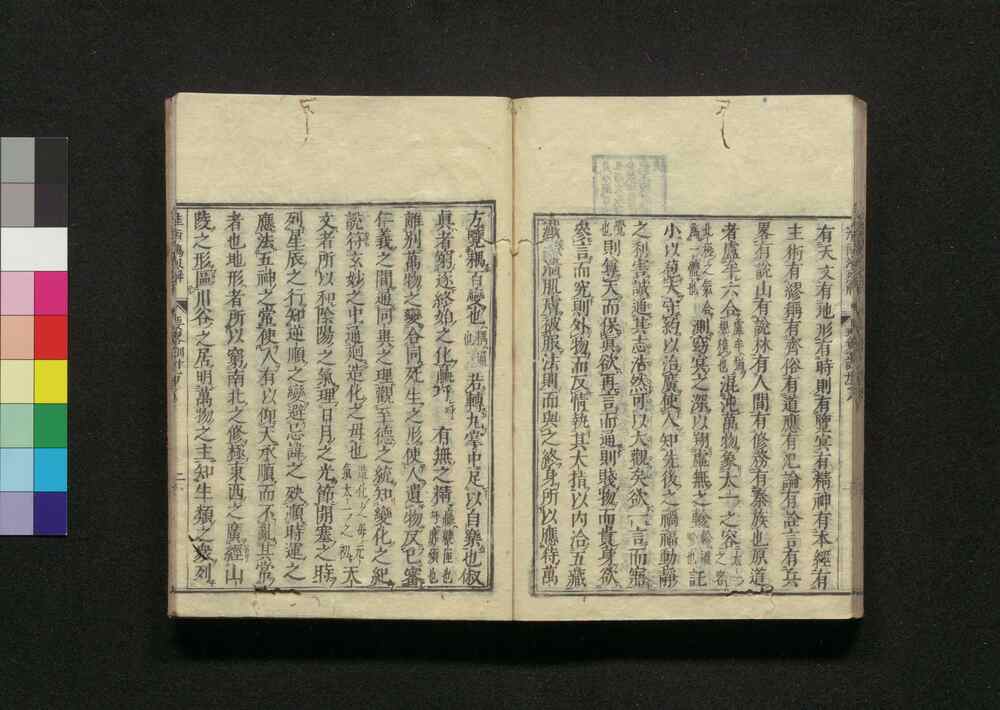 有天文有地形有時則有覽冥有精神有本經有
主術有繆稱有齊俗有道應有氾論有詮言有兵
畧有說山有說林有人間有修務有泰族也原道
者盧牟六合混沌萬物象太一之容
測窈冥之深以翔虛無之軫託
小以苞大守約以治廣使人知先後之禍福動靜
之利害誠通其志浩然可以大觀矣欲一言而寤
則尊天而保真欲再言而通則賤物而貴身欲
參言而究則外物而反情執其大指以內洽五藏
瀸濇肌膚被服法則而與之終身所以應待萬
方覽耦百變也若轉丸掌中足以自樂也俶
真者窮逐終始之化嬴垀有無之精
離別萬物之變合同死生之形使人遺物反己審
仁義之間通同異之理觀至德之統知變化之紀
說符玄妙之中通迴造化之母也天
文者所以和陰陽之氣理日月之光節開塞之時
列星辰之行知逆順之變避忌諱之殃順時運之
應法五神之常使人有以仰天承順而不亂其常
者也地形者所以窮南北之修極東西之廣經山
陵之形區川谷之居明萬物之主知生類之衆列